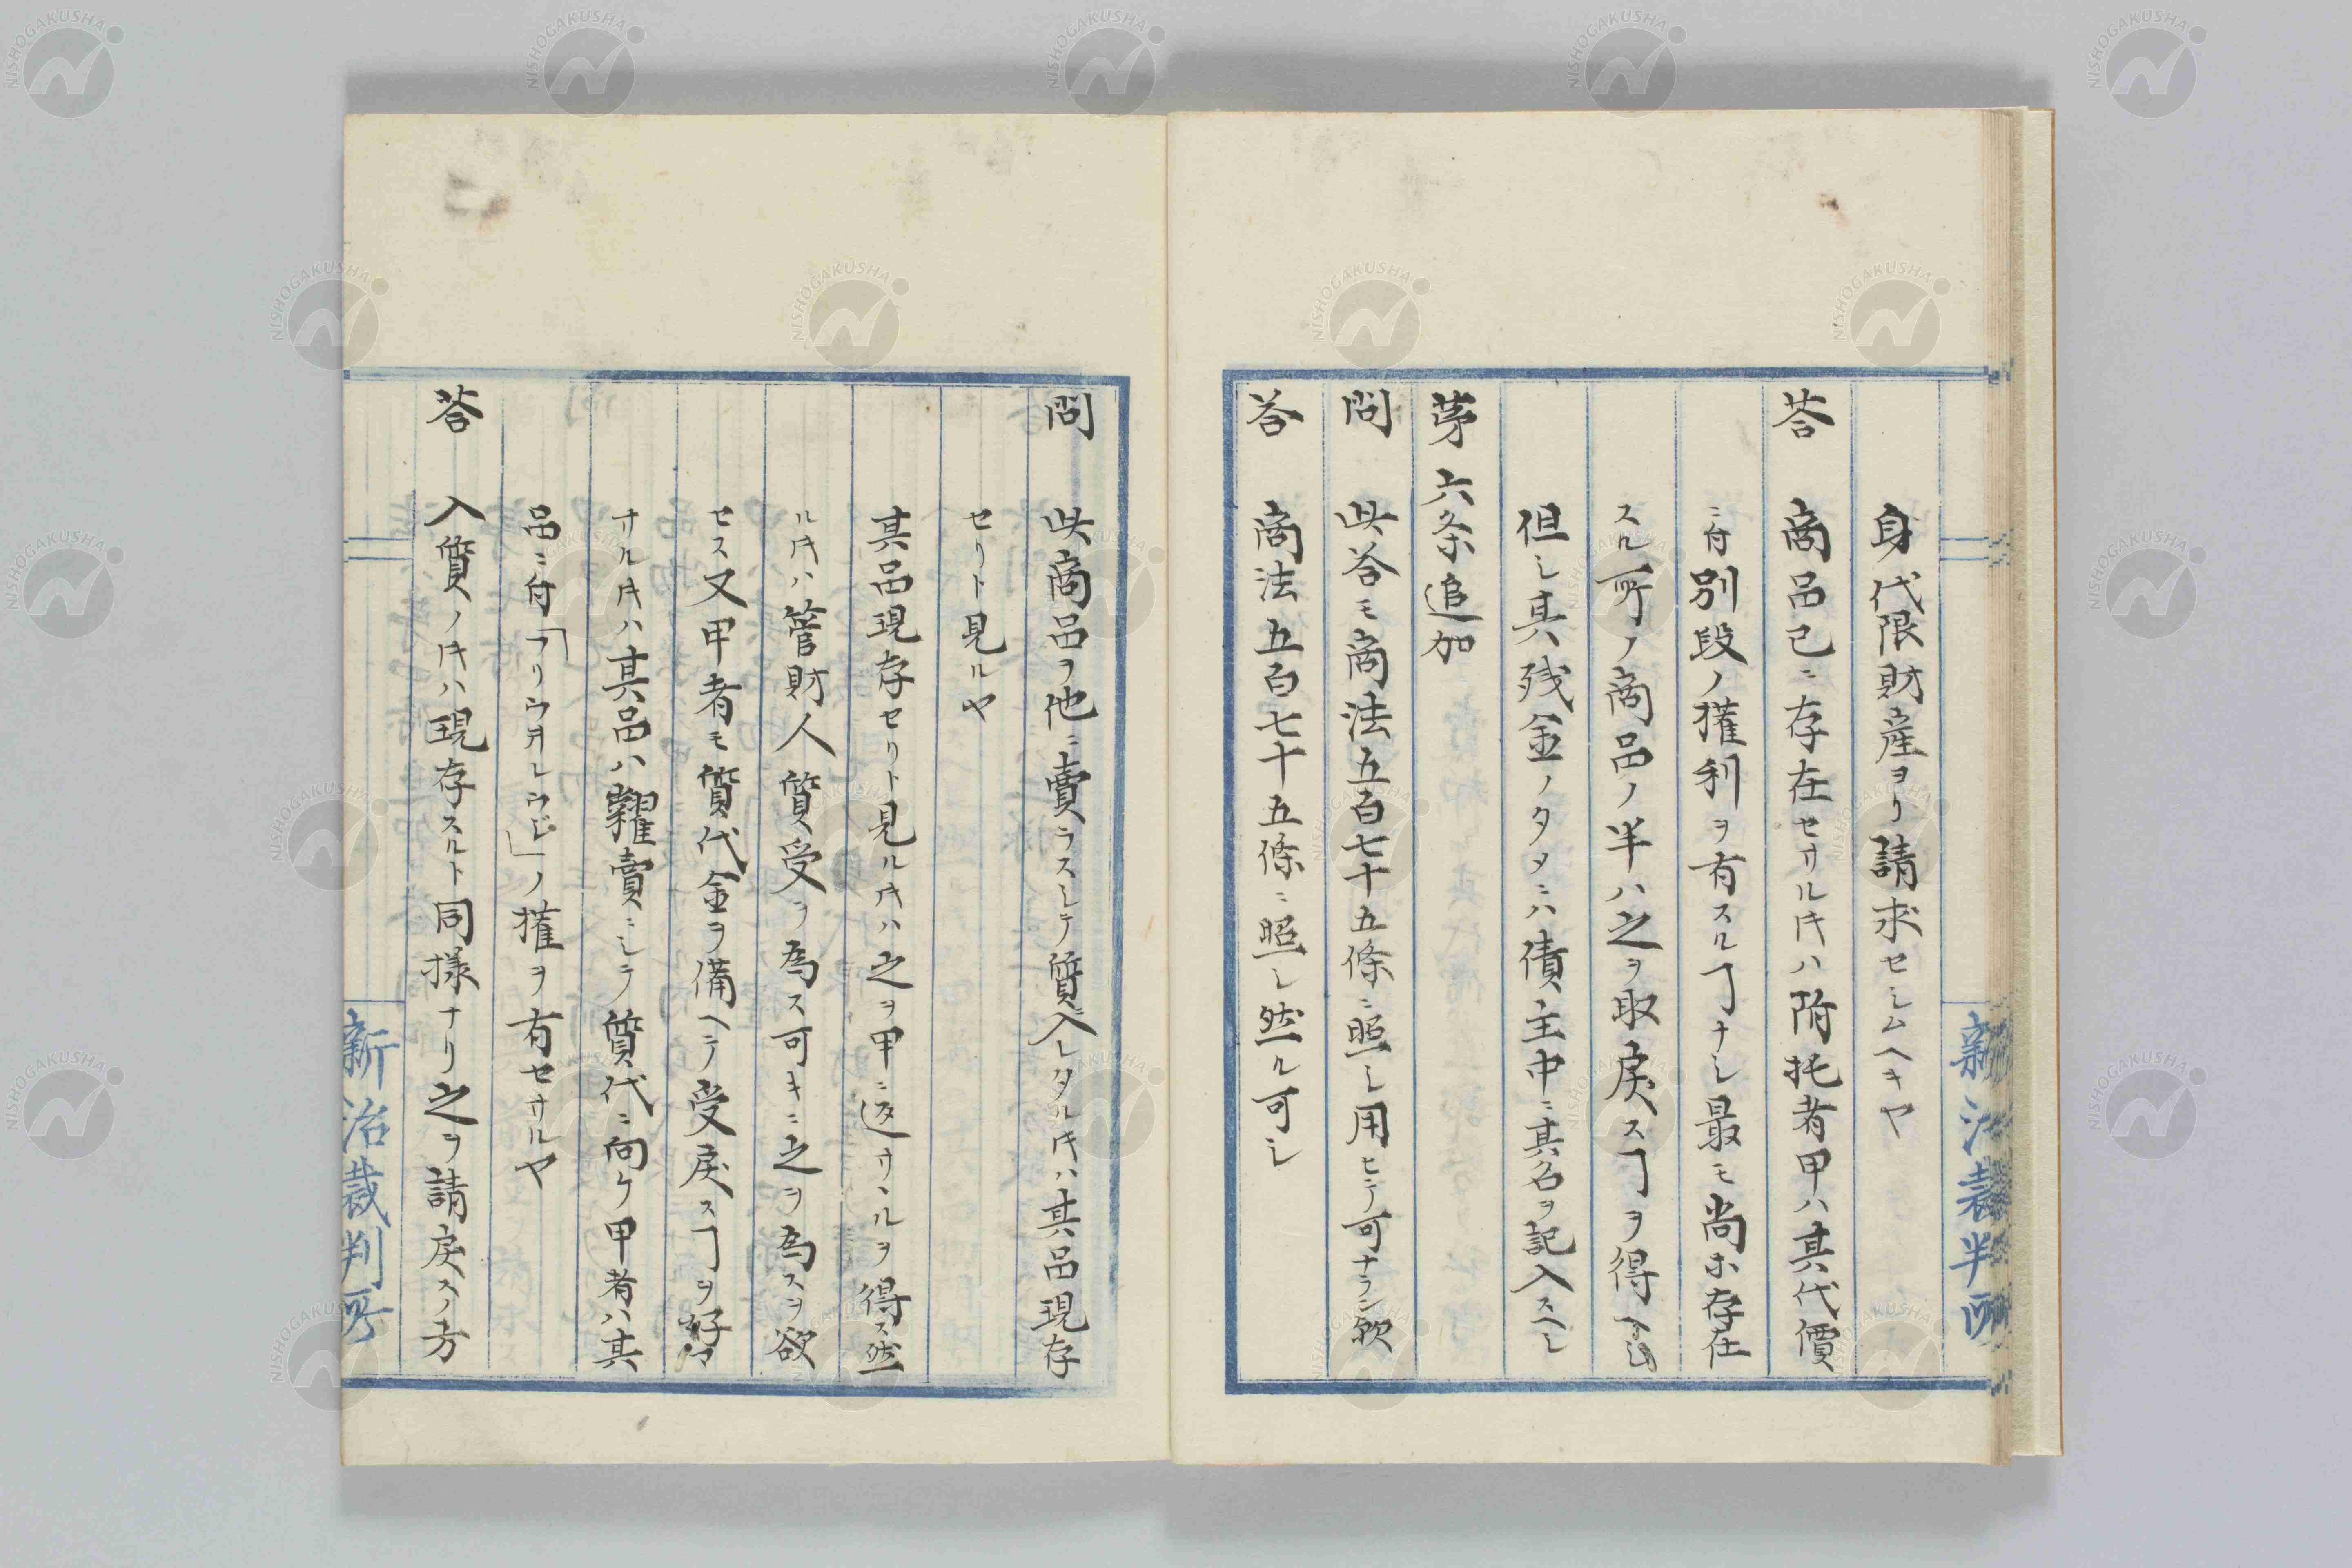 身代限財産ヨリ請求セシムヘキヤ
答 商品已ニ存在セサル𪜈ハ附托者甲ハ其代價
ニ付別段ノ権利ヲ有スルヿナシ最モ尚ホ存在
スル所ノ商品ノ半ハ之ヲ取戻スヿヲ得ヘシ
但シ其残金ノタメニハ債主中ニ其名ヲ記入スヘシ
第六条追加
問 此答モ商法五百七十五條ニ照シ用ヒテ可ナラン歟
答 商法五百七十五條ニ照シ然ル可シ
問 此商品ヲ他ニ賣ラスシテ質入レタル𪜈ハ其品現存
セリト見ルヤ
其品現存セリト見ル𪜈ハ之ヲ甲ニ返サヽルヲ得ス然
ル𪜈ハ管財人質受ヲ為ス可キニ之ヲ為スヲ欲
セス又甲者モ質代金ヲ備ヘテ受戻スヿヲ好マ
サル𪜈ハ其品ハ糶賣ニシテ質代ニ向ケ甲者ハ其
品ニ付「フリウヲレウジ」ノ権ヲ有セサルヤ
答 入質ノ𪜈ハ現存スルト同様ナリ之ヲ請戻スノ方
新治裁判所
新治裁判所